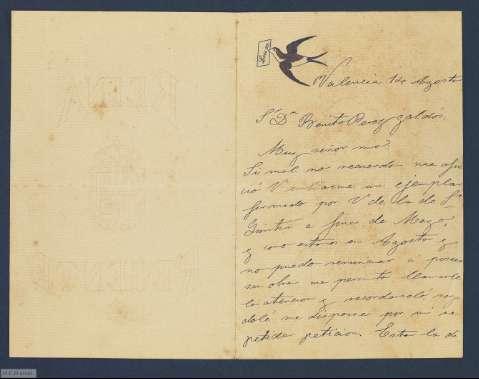 Valencia 14 Agosto
Sr. Dn. Benito Perez Galdós.
Muy señor mio:
Si mal no recuerdo me ofre
ció V enviarme un ejemplar
firmado por V de la de Sn
Quintin a fines de Mayo,
y como estamos en Agosto y
no puedo renunciar á poseer
su obra me permito llamarle
la atencion y recordarselo ro
gandole me dispense por mi
peticion. Esta la de